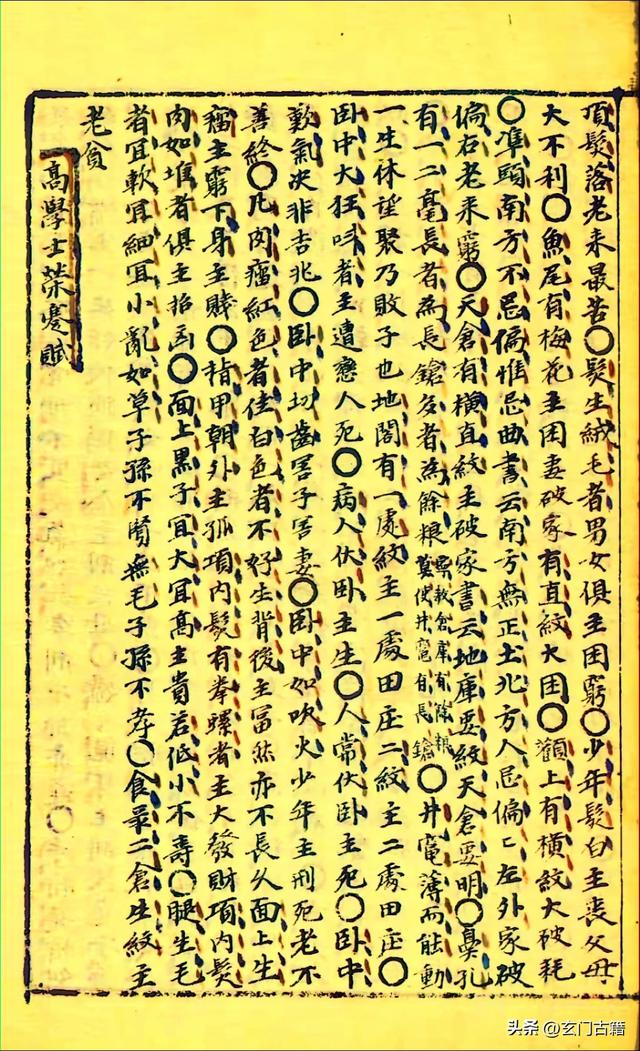 頂髮落老来最苦〇髮生絨毛者男女俱主困窮〇少年髮白主丧父母
大不利〇魚尾有梅花主困妻破家有直紋大困〇顴上有横紋大破耗
〇準頭南方不忌偏惟忌曲書云南方無正土北方人忌偏ヒ左外家破
偏右老来窮〇天倉有横直紋主破家書云地庫要紋天倉要明〇鼻孔
有一二毫長者為長鎗多者為餘粮要教倉庫有餘粮莫使井竈有長鎗〇井竈薄而能動
一生休望聚乃敗子也地閣有一處紋主一處田庄二紋主二處田庄〇
卧中大狂呌者主遭惡人死〇病人伏卧主生〇人常伏卧主死〇卧中
歎氣决非吉兆〇卧中切齒害子害妻〇卧中如吹火少年主刑死老不
善終〇凡肉瘤红色者佳白色者不好生背後主冨然亦不長久面上生
瘤主窮下身主賤〇指甲朝外主孤項内髮有拳螺者主大發财項内髮
肉如堆者俱主招凶〇面上黑子宜大宜高主貴若低小不壽〇腿生毛
者宜軟宜細宜小亂如草子孫不賢無毛子孫不孝〇食禄二倉生紋主
老貧
高學士榮憂賦
头条 @玄门古籍